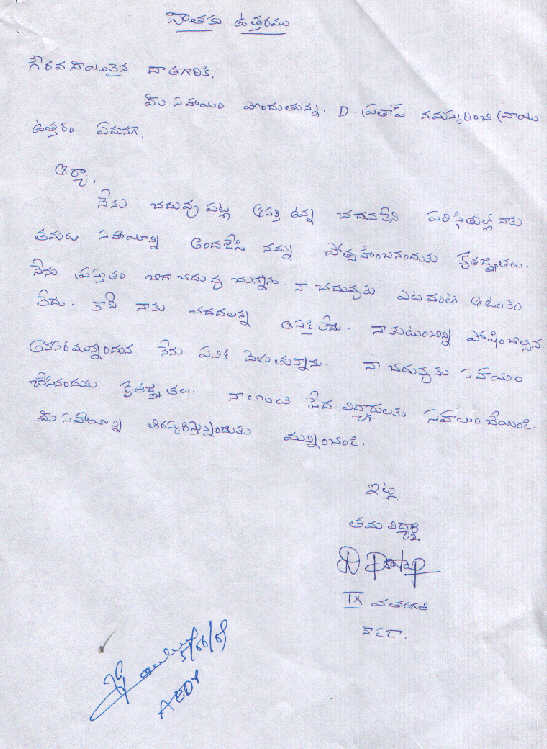 దాతకు ఉత్తరము
గౌరవనీయులైన దాతగారికి,
మీ సహాయం పొందుతున్న D. ప్రతాప్ నమస్కరించి వ్రాయు
ఉత్తరం ఏమనగా,
ఆర్యా,
నేను చదువు పట్ల ఆసక్తి ఉన్న చదువలేని పరిస్థితుల్లో నాకు
తమరు సహాయాన్ని అందజేసి నన్ను ప్రోత్సహించినందుకు కృతజ్ఞతలు.
నేను ప్రస్తుతం బాగా చదువుచున్నాను. నా చదువుకు ఎటువంటి ఆటంకం
లేదు. కానీ నాకు చదవాలన్న ఆసక్తి లేదు. నా కుటుంబాన్ని పోషించాల్సిన
నేను పనికి వెళుతున్నాను. నా చదువుకు సహాయం
చేసినందుకు కృతజ్ఞతలు. నాలాంటి పేద విద్యార్థులకు సహాయం చేయండి.
మీ సహాయాన్ని తిరస్కరిస్తున్నందుకు మన్నించండి.
ఇట్లు
తమ విద్యార్థి
D Pratap
IX వ తరగతి
5/06/09